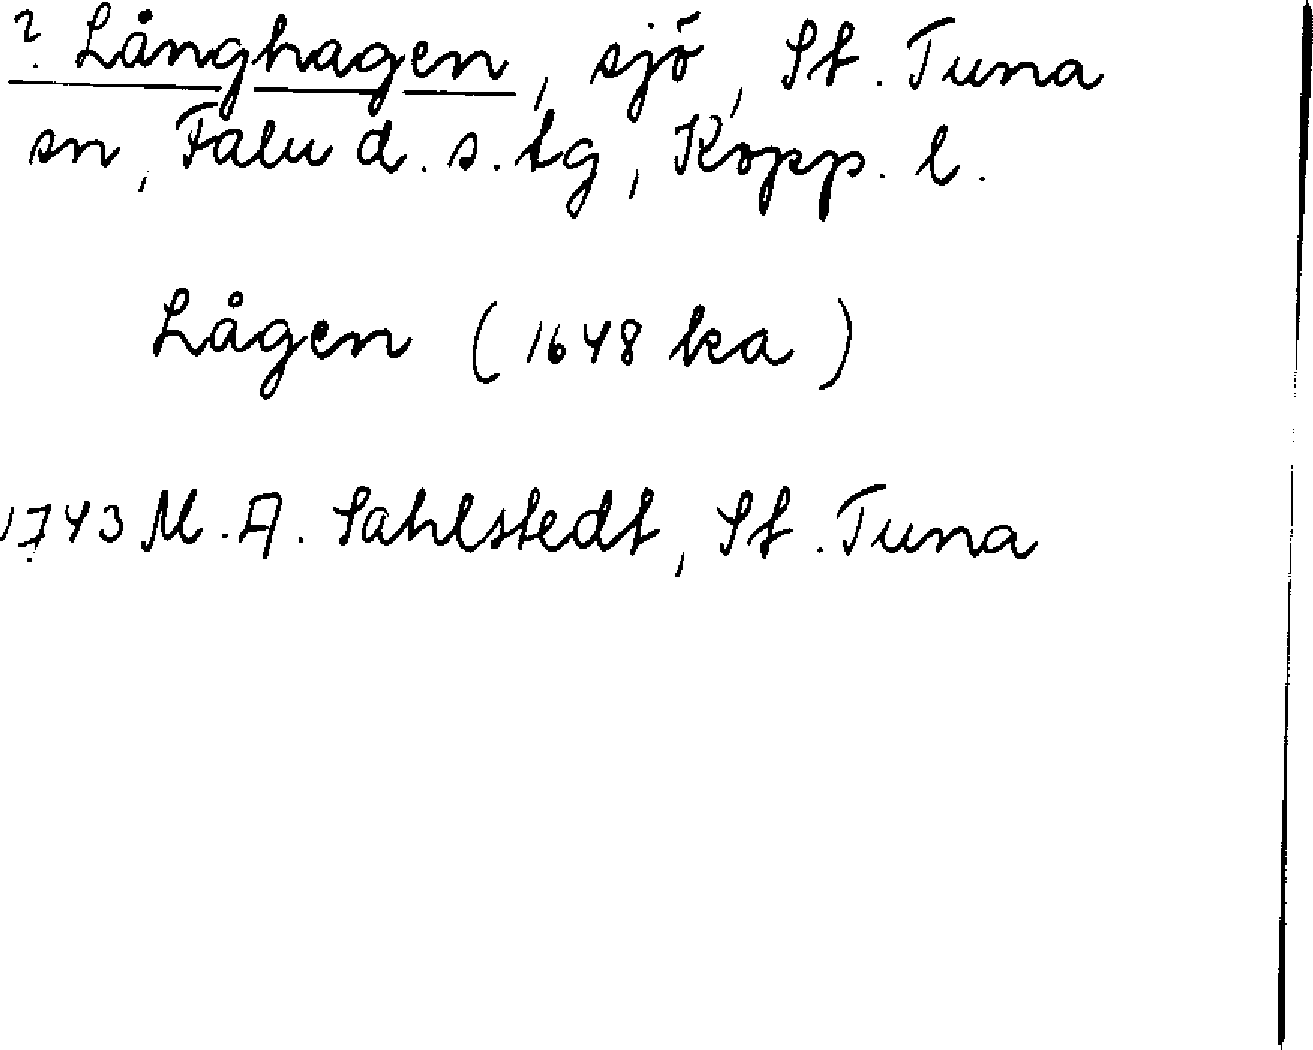 ? Långhagen, sjö, St. Tuna
sn, Falu d. s. tg, Kopp. l.
Lågen (1648 ka)
1743 M. A. Sahlstedt, St. Tuna